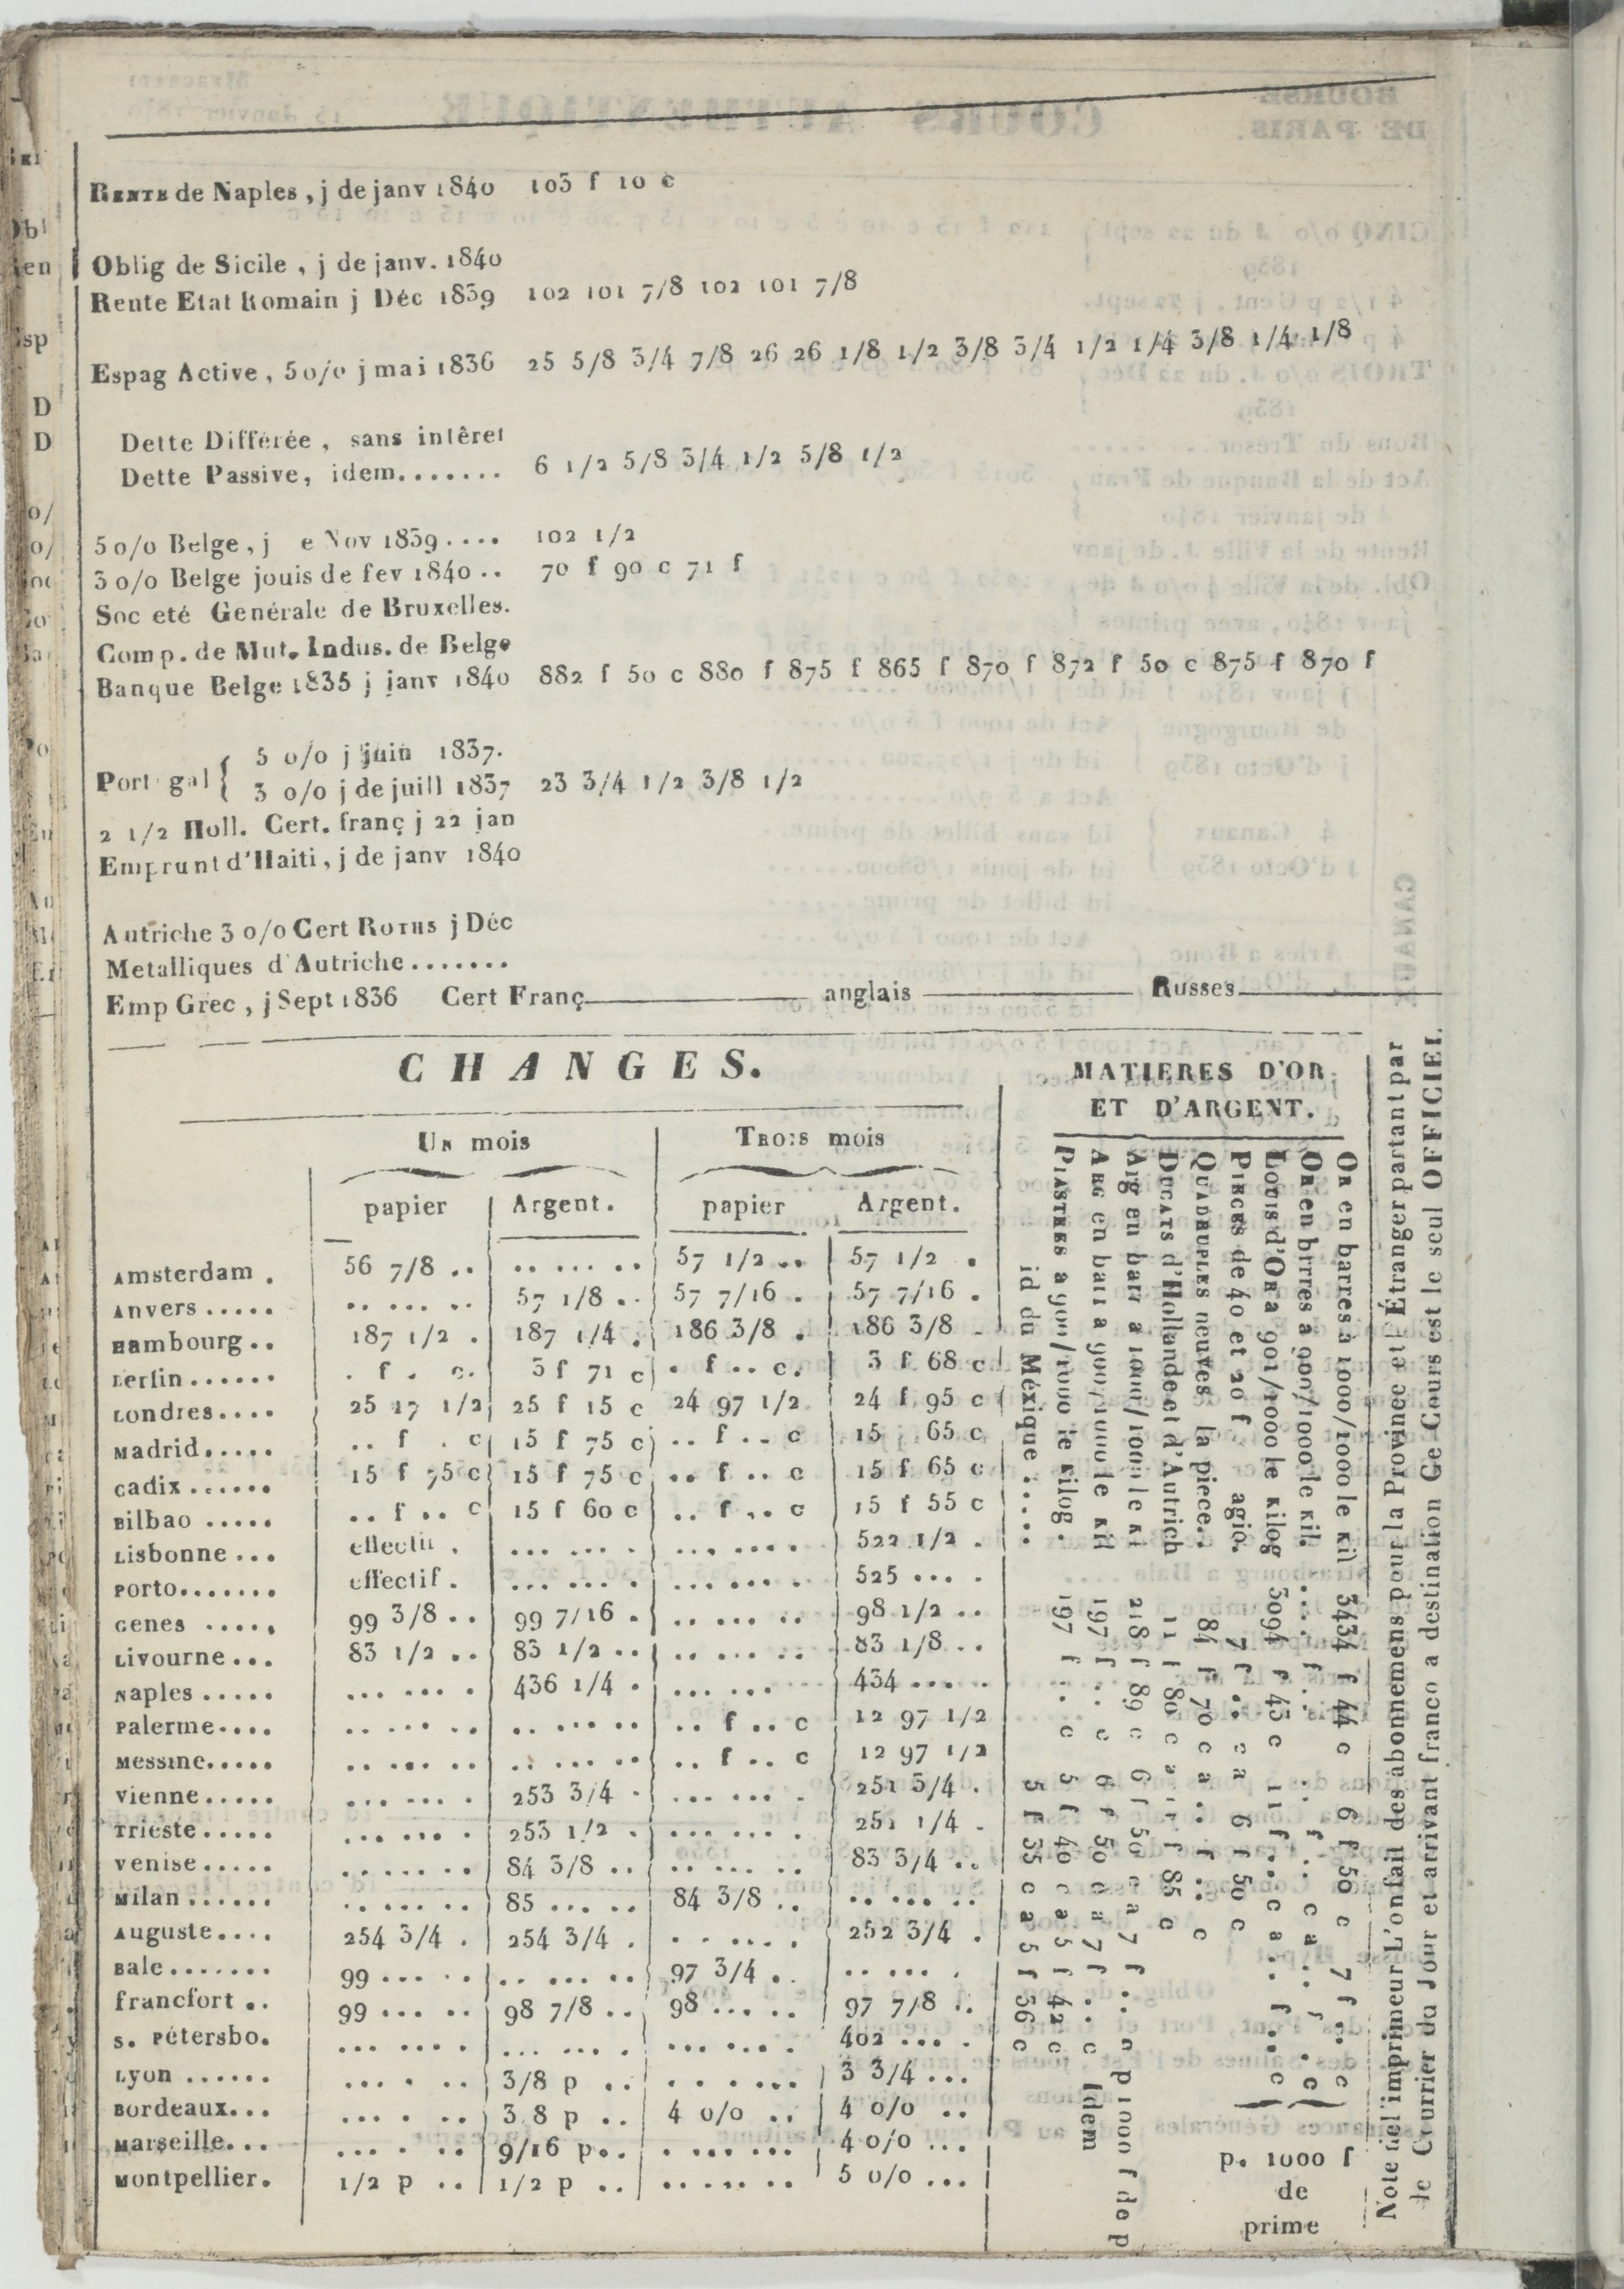 RENTE de Naples, j de janv 1840 103 f 10 c
Oblig de Sicile, j de janv. 1840
Rente Etat Romain j Déc 1839 102 101 7/8 102 101 7/8
Espag Active, 5 o/o j mai 1836 25 5/8 3/4 7/8 26 26 1/8 1/2 3/8 3/4 1/2 1/4 3/8 1/4 1/8
Dette Différée, sans intêret
Dette Passive, idem....... 6 1/2 5/8 3/4 1/2 5/8 1/2
5 o/o Belge, j e Nov 1839.... 102 1/2
3 o/o Belge jouis de fev 1840.. 70 f 90 c 71 f
Soc eté Genérale de Bruxelles.
Comp. de Mut. Indus. de Belge
Banque Belge 1835 j janv 1840 882 f 50 c 880 f 875 f 865 f 870 f 872 f 50 c 875 f 870 f
5 o/o j juin 1837.
Port gal {
3 o/o j de juill 1837 23 3/4 1/2 3/8 1/2
2 1/2 Holl. Cert. franç j 22 jan
Emprunt d'Haiti, j de janv 1840
Autriche 3 o/o Cert ROTHS j Déc
Metalliques d'Autriche.......
Emp Grec, j Sept 1836 Cert Franç anglais Russes
CHANGES.
UN mois TROIS mois
papier Argent. papier Argent.
Amsterdam . 56 7/8 .. .. ... .. 57 1/2 .. 57 1/2 .
Anvers ..... .. ... .. 57 1/8 .. 57 7/16 . 57 7/16 .
Hambourg .. 187 1/2 . 187 1/4 . 186 3/8 . 186 3/8 .
Berlin ...... . f . c. 3 f 71 c . f .. c. 3 f 68 c
Londres.... 25 17 1/2 25 f 15 c 24 97 1/2 24 f 95 c
Madrid..... .. f . c 15 f 75 c .. f .. c 15 65 c
Cadix ...... 15 f 75 c 15 f 75 c .. f .. c 15 f 65 c
Bilbao ..... .. f .. c 15 f 60 c .. f .. c 15 f 55 c
Lisbonne ... effectif . ... ... . ... .... 522 1/2 .
Porto....... effectif . ... ... . ... ... . 525 ... .
Genes ..... 99 3/8 .. 99 7/16 . .. ... .. 98 1/2 ..
Livourne ... 83 1/2 .. 83 1/2 .. .. ... .. 83 1/8 ..
Naples ..... ... ... . 436 1/4 . ... ... 434 ... .
Palerme.... .. ... .. .. ... .. .. f .. c 12 97 1/2
Messine..... .. ... .. .. ... .. .. f .. c 12 97 1/2
Vienne ..... ... ... . 253 3/4 . ... ... . 251 3/4 .
Trieste ..... ... ... . 253 1/2 . ... ... . 251 1/4 .
Venise ..... .. ... .. 84 3/8 .. .. ... .. 83 3/4 ..
Milan ...... .. ... .. 85 ... .. 84 3/8 .. .. ... ..
Auguste.... 254 3/4 . 254 3/4 . . . ... . 252 3/4 .
Bale ....... 99 ... .. .. ... .. 97 3/4 .. .. ... .
francfort .. 99 ... .. 98 7/8 .. 98 ... .. 97 7/8 ..
S. Pétersbo. ... ... . ... ... . ... ... . 402 ... .
Lyon ...... ... . .. 3/8 p .. . . . ... 3 3/4 ...
Bordeaux... ... . .. 3 8 p .. 4 o/o .. 4 o/o ..
Marseille... ... . .. 9/16 p.. . ... ... 4 o/o ...
Montpellier. 1/2 p .. 1/2 p .. .. ... .. 5 o/o ...
MATIERES D'OR
ET D'ARGENT.
OR en barres à 1000/1000 le Kil 3434 f 44 c 6 f 50 c 7 f .. c
OR en brrres a 900/1000 le Kil. ... f .. .. f .. c a .. f .. c
LOUIS d'OR a 901/1000 le Kilog 3094 f 43 c 11 f .. c a .. f .. c
PIECES de 40 et 20 f. agio. 7 f .. c a 6 f 50 c
QUADRUPLES neuves la piece.. 84 f 70 c a .. f .. c
DUCATS d'Hollande et d'Autrich 11 f 80 c a 11 f 85 c
Arg en barr a 1000/1000 le Ki 218 f 89 c 6 f 50 c a 7 f .. c p 1000 f de p
ARG en barr a 900/1000 le Kil 197 f .. c 6 f 50 c a 7 f .. c Idem
PIASTRES a 900/1000 le Kilog. 197 f .. c 5 f 40 c a 5 f 42 c
id du Méxique ..... 5 f 35 c a 5 f 36 c
p. 1000 f
de
prime
Note de l'imprimeur L'on fait des abonnemens pour la Province et l'Étranger partant par
le Courrier du Jour et arrivant franco a destination Ce Cours est le seul OFFICIEL.